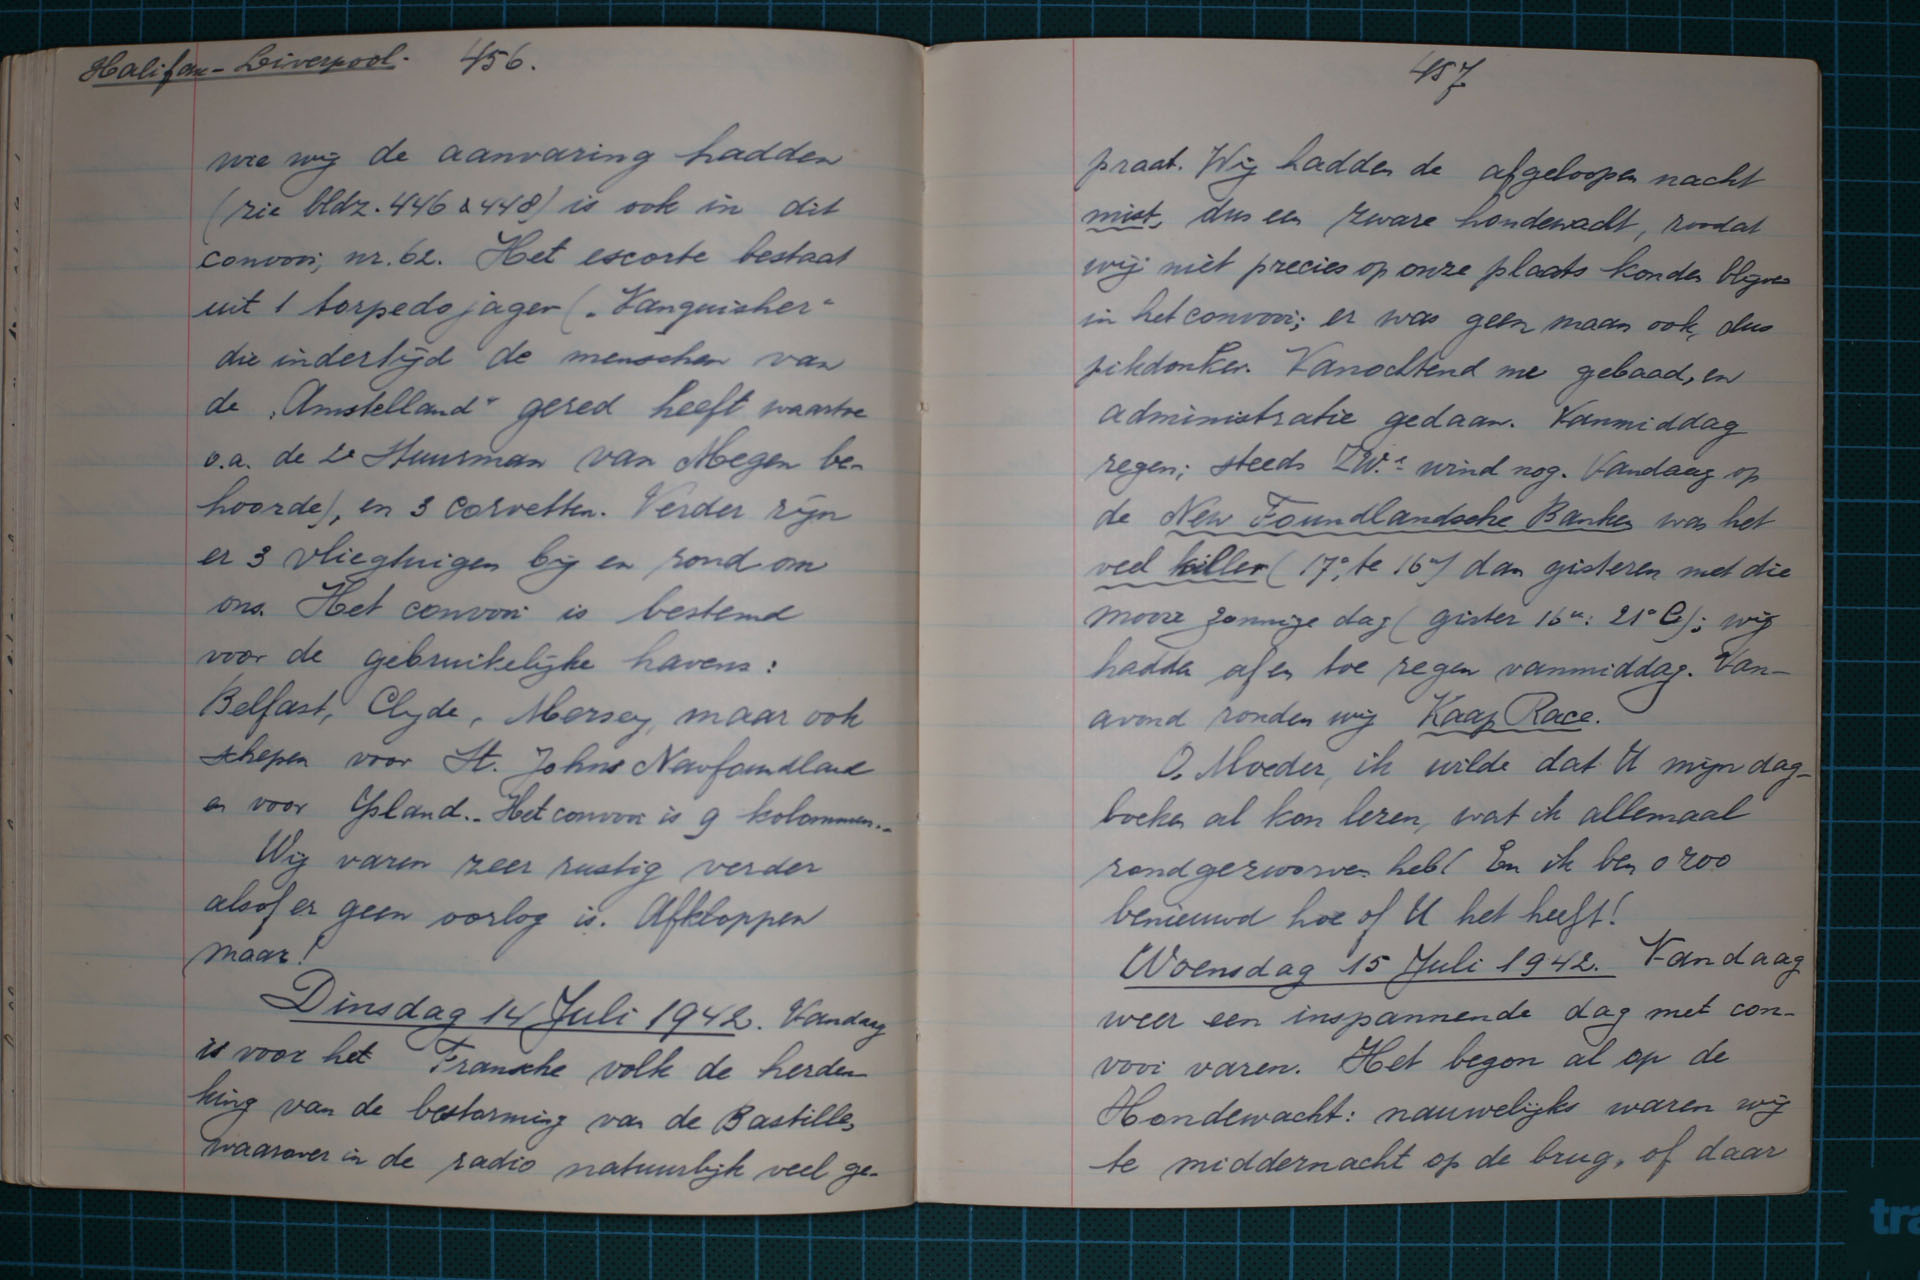 Halifax - Liverpool. 456.
wie wij de aanvaring hadden
(zie bldz. 446 & 448) is ook in dit
convooi, nr. 62. Het escorte bestaat
uit 1 torpedojager („Vanquisher"
die indertijd de menschen van
de „Amstelland" gered heeft waartoe
o.a. de 2e Stuurman van Megen be-
hoorde), en 3 corvetten. Verder zijn
er 3 vliegtuigen bij en rond om
ons. Het convooi is bestemd
voor de gebruikelijke havens:
Belfast, Clyde, Mersey, maar ook
schepen voor St. Johns Newfoundland
en voor IJsland.- Het convooi is 9 kolommen.-
Wij varen zeer rustig verder
alsof er geen oorlog is. Afkloppen
maar!
Dinsdag 14 Juli 1942. Vandaag
is voor het Fransche volk de herden-
king van de bestorming van de Bastille,
waarover in de radio natuurlijk veel ge-
457
praat. Wij hadden de afgeloopen nacht
mist, dus een zware hondewacht, zoodat
wij niet precies op onze plaats konden blijven
in het convooi; er was geen maan ook, dus
pikdonker. Vanochtend me gebaad, en
administratie gedaan. Vanmiddag
regen; steeds ZW.e wind nog. Vandaag op
de New Foundlandsche Banken was het
veel killer (17°, te 16u) dan gisteren met die
mooie zonnige dag (gister 16u: 21° C); wij
hadden af en toe regen vanmiddag. Van-
avond ronden wij Kaap Race.
O, Moeder, ik wilde dat U mijn dag-
boeken al kon lezen, wat ik allemaal
rondgezworven heb! En ik ben o zoo
benieuwd hoe of U het heeft!
Woensdag 15 Juli 1942. Vandaag
weer een inspannende dag met con-
vooi varen. Het begon al op de
Hondewacht: nauwelijks waren wij
te middernacht op de brug, of daar
tra